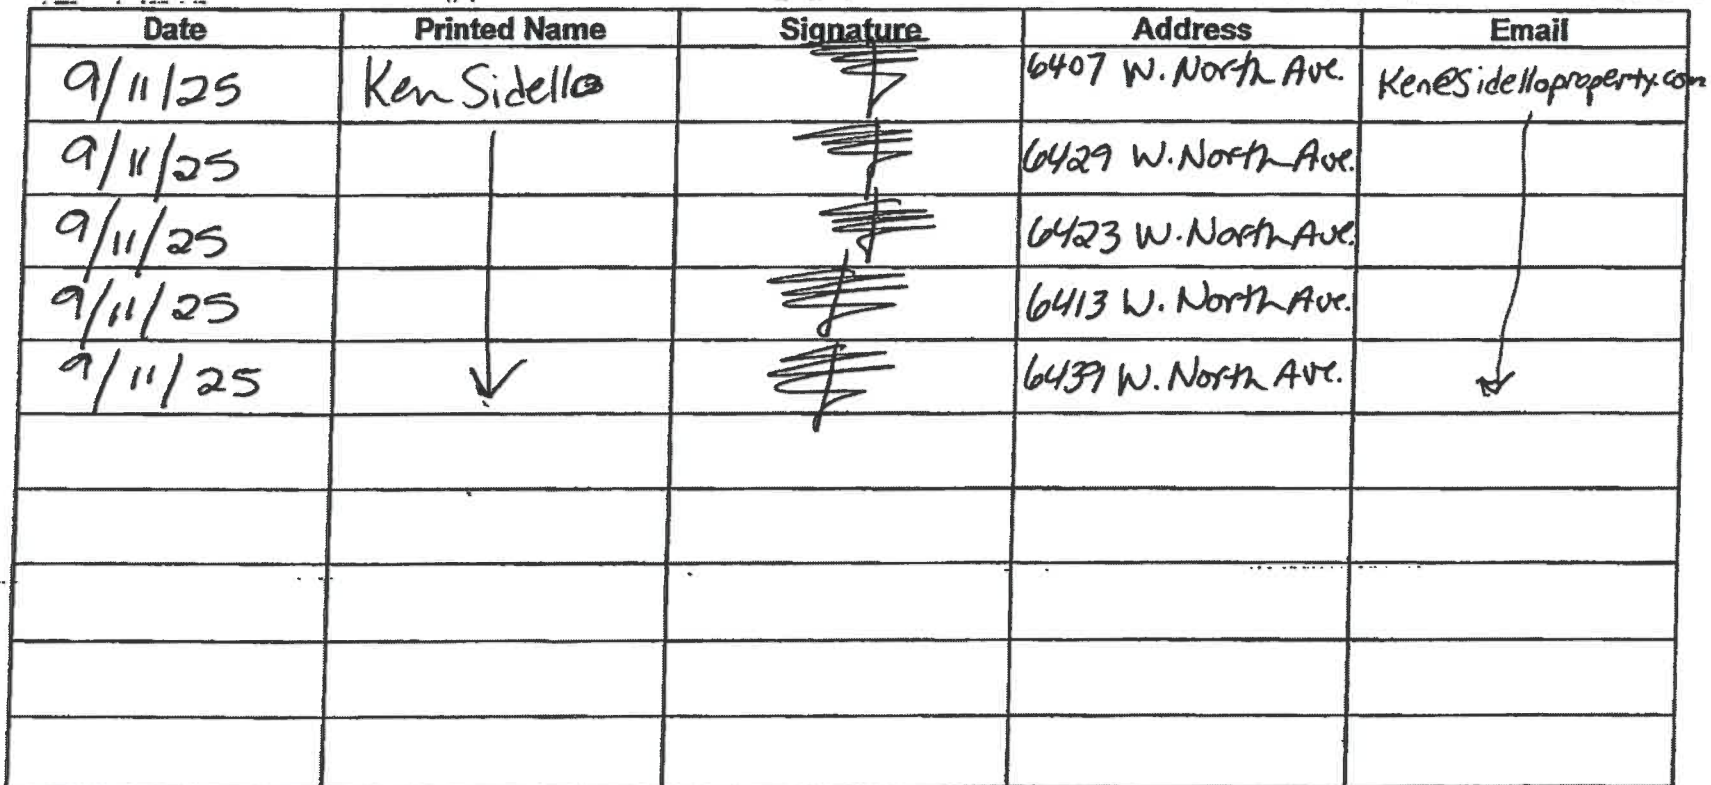 Date Printed Name Signature Address Email
9/11/25 Ken Sidello 6407 W. North Ave. Ken@Sidelloproperty.com
9/11/25 6429 W. North Ave.
9/11/25 6423 W. North Ave.
9/11/25 6413 W. North Ave.
9/11/25 6439 W. North Ave.